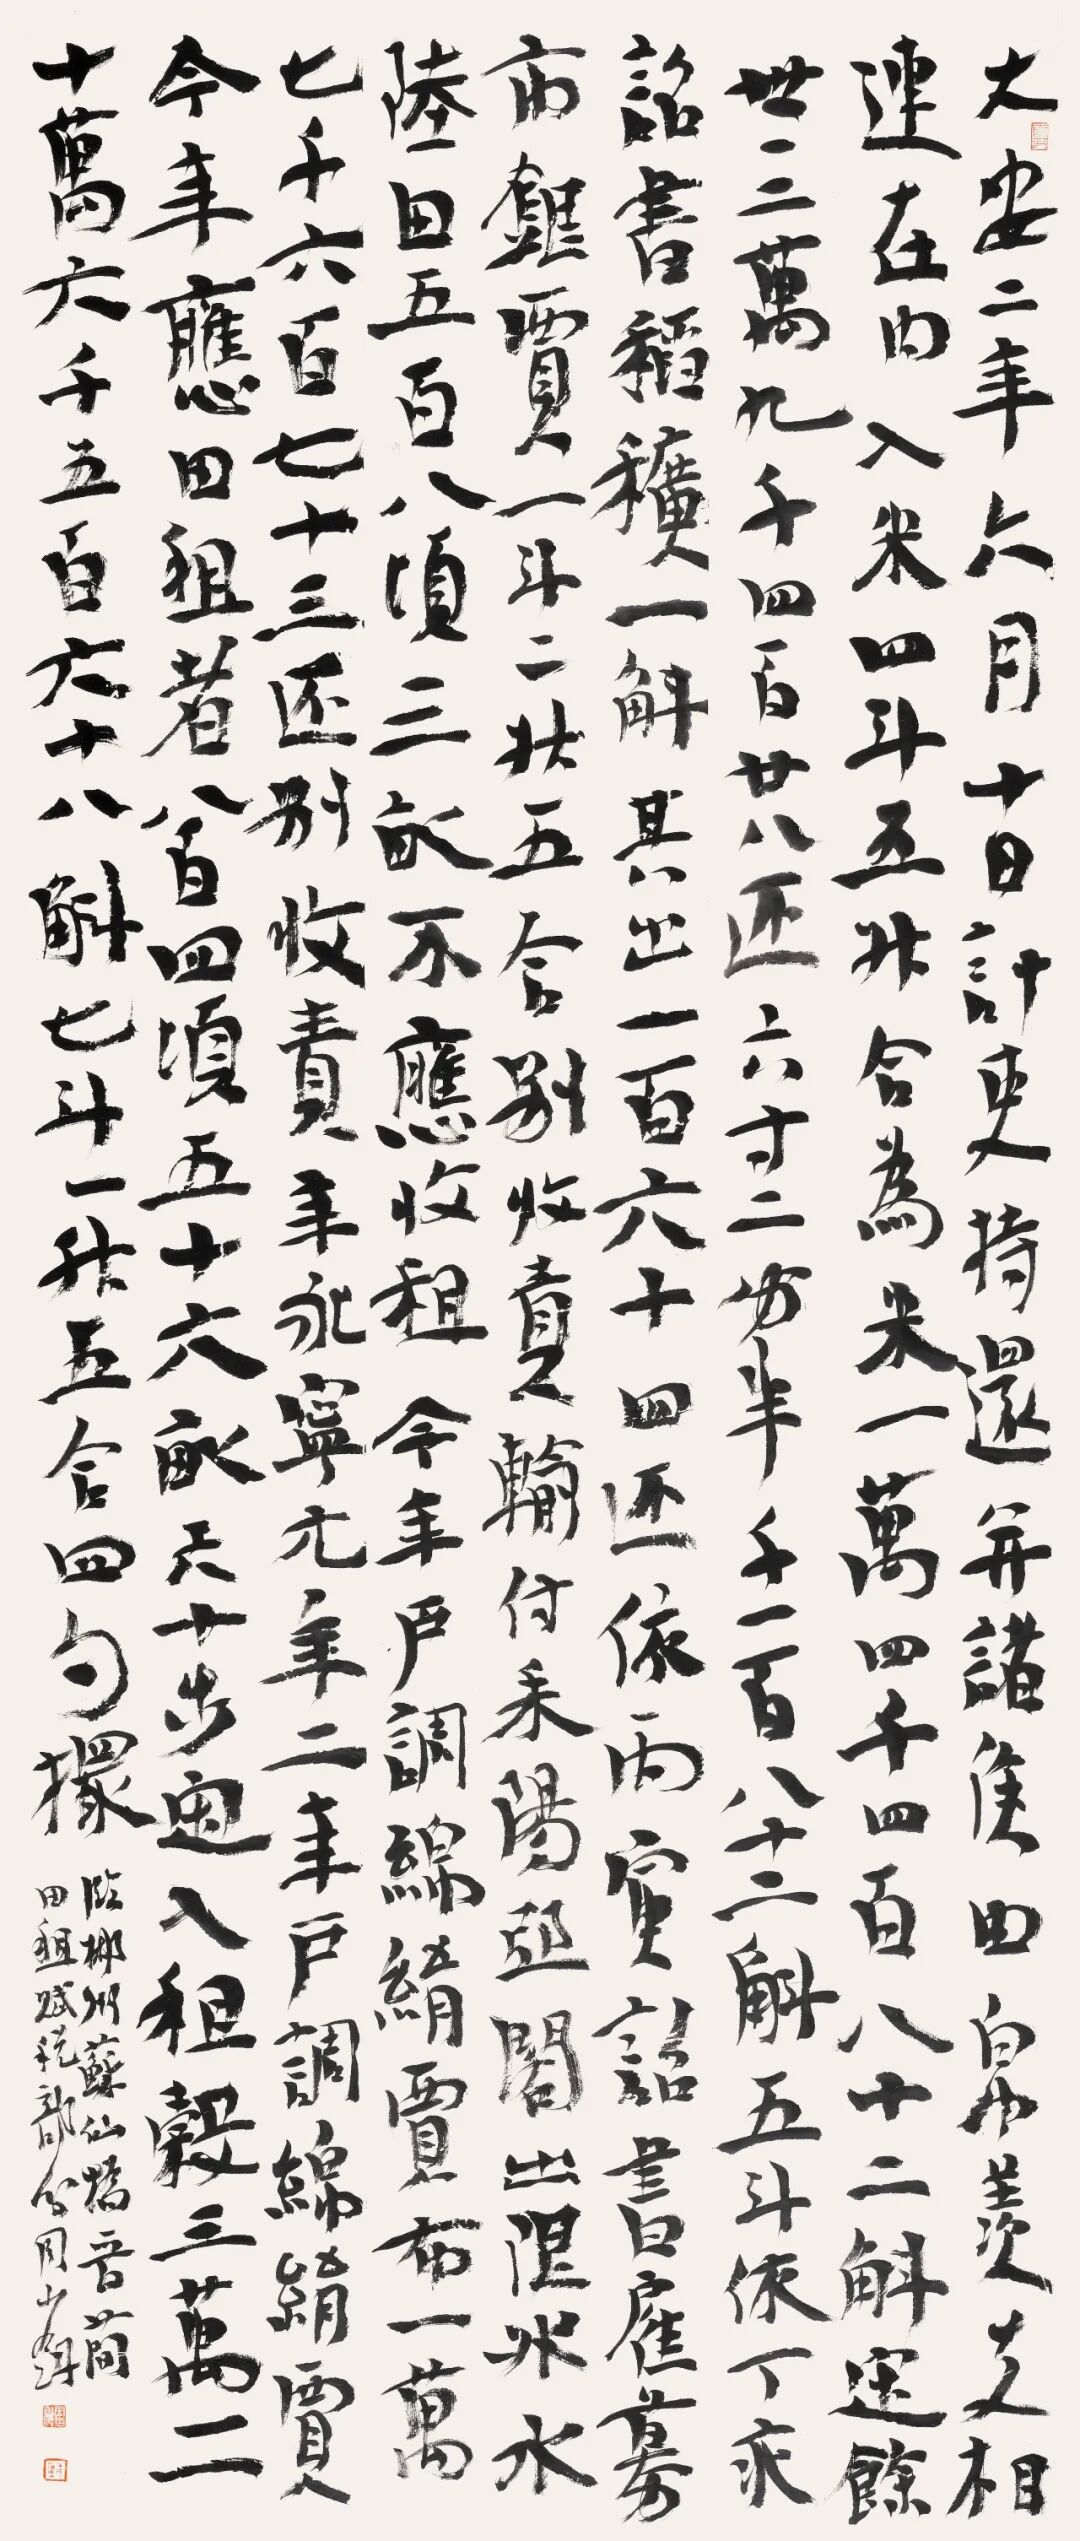 大安二年六月十日計吏持還并諸侯田白帛羨支相
連在內入米四斗五升合為米一萬四千四百八十二斛運餘
丗二萬九千四百廿八匹六寸二分半千一百八十二斛五斗依丁亥
詔書稻穬一斛其出一百六十四匹依丙寅詔書雇募
市雜賈一斗二升五合別收責輸付耒陽亟閣出限水
陸田五百八頃三畝不應收租今年戶調綿絹賈布一萬
七千六百七十三匹別收責年永寧元年二年戶調綿絹賈
今年應田租者八百四頃五十六畝六十步定入租穀三萬二
十萬六千五百六十八斛七斗一升五合四勺㩲
臨郴州蘇仙橋晉簡
田租賦稅部分